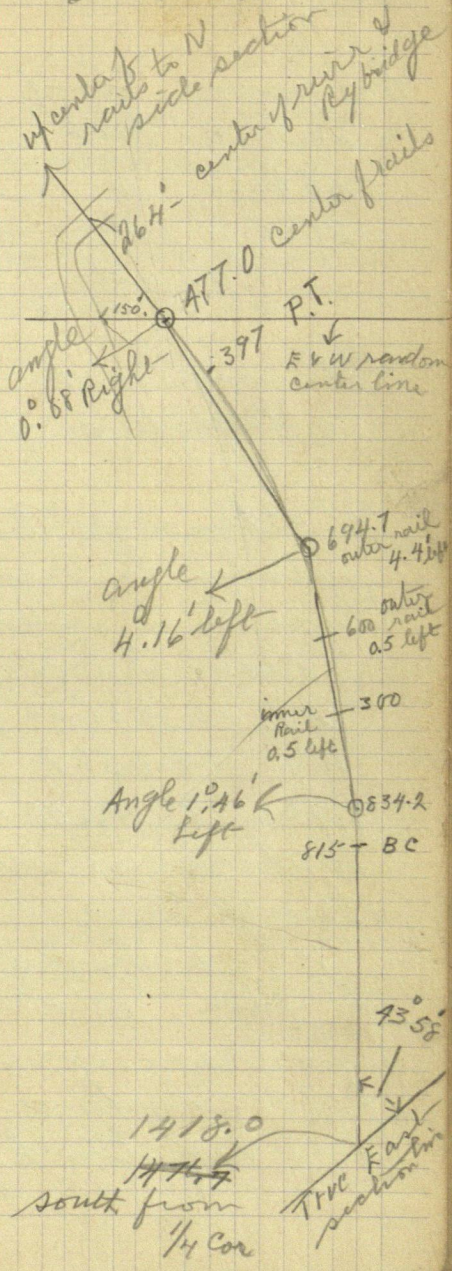 up center of
rails to N
side section
264' center of river &
Ry bridge
477.0 center of rails
150'
P.T.
397
angle
0° 08' Right
E & W random
center line
694.7
outer rail
4.4' left
angle
4° 16' left
600 outer
rail
0.5 left
300
inner
Rail
0.5 left
Angle 1° 46'
Left
834.2
815 BC
43° 58'
1418.0
south from
1/4 Cor
True East
section line